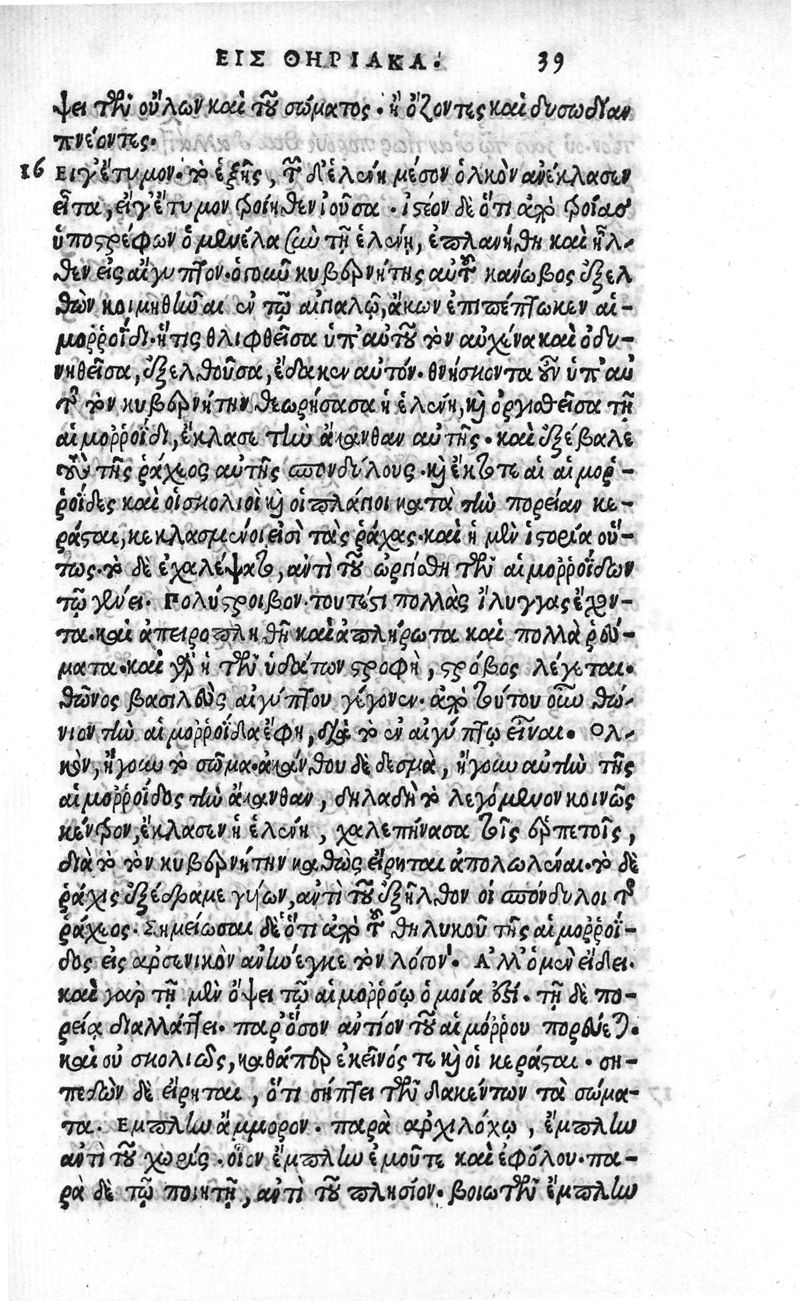 ΕΙΣ ΘΗΡΙΑΚΑ. 39
ψει τῶν οὔλων καὶ τοῦ σώματος. ἢ ὄζοντες καὶ δυσωδίαν
πνέοντες.
16 Ειγ' ἔτυμον. τὸ ἑξῆς, τοῦ δ' ἑλένη μέσον ὁλκὸν ἀνέκλασεν
εἶτα, εἴγ' ἔτυμον τροίηθεν ἰοῦσα. ἰστέον δὲ ὅτι ἀπὸ τροίας
ὑποστρέφων ὁ μενέλαος σὺν τῇ ἑλένῃ, ἐπλανήθη καὶ ἦλ-
θεν εἰς αἴγυπτον. ὁ γοῦν κυβερνήτης αὐτοῦ κάνωβος ἐξελ
θὼν κοιμηθῆναι ἐν τῷ αἰγιαλῷ, ἄκων ἐπιπέπτωκεν αἱ-
μοῤῥοΐδι. ἥτις θλιφθεῖσα ὑπ' αὐτοῦ τὸν αὐχένα καὶ ὀδυ-
νηθεῖσα, ἐξελθοῦσα, ἔδακεν αὐτόν. θνήσκοντα οὖν ὑπ' αὐ
τοῦ τὸν κυβερνήτην θεωρήσασα ἡ ἑλένη, κỳ ὀργισθεῖσα τῇ
αἱμοῤῥοΐδι, ἔκλασε τὴν ἄκανθαν αὐτῆς. καὶ ἐξέβαλε
τοὺς τῆς ῥάχεως αὐτῆς σπονδύλους. καὶ ἔκτοτε αἱ αἱμοῤ-
ῥοΐδες καὶ οἱ σκολιοὶ καὶ οἱ πλάγιοι κατὰ τὴν πορείαν κε-
ράσται, κεκλασμένοι εἰσὶ τὰς ῥάχας. καὶ ἡ μὲν ἱστορία οὕ-
τως. τὸ δὲ ἐχαλέψατο, ἀντὶ τοῦ ὠργίσθη τῶν αἱμοῤῥοΐδων
τῷ γένει. Πολύστροιβον. τουτέστι πολλὰς ἴλυγγας ἔχον-
τα. καὶ ἀπειροπληθῆ καὶ ἀπλήρωτα καὶ πολλὰ ῥεύ-
ματα. καὶ γὰρ ἡ τῶν ὑδάτων στροφὴ, στρόβος λέγεται.
θῶνος βασιλεὺς αἰγύπτου γέγονεν. ἀπὸ τούτου οὖν θώ-
νιον τὴν αἱμοῤῥοΐδα ἔφη, διὰ τὸ ἐν αἰγύπτῳ εἶναι. Ολ-
κὸν, ἤγουν τὸ σῶμα. ἀκάνθου δὲ δεσμὰ, ἤγουν αὐτὴν τῆς
αἱμοῤῥοΐδος τὴν ἄκανθαν, δηλαδὴ τὸ λεγόμενον κοινῶς
κέντρον, ἔκλασεν ἡ ἑλένη, χαλεπήνασα τοῖς ἑρπετοῖς,
διὰ τὸ τὸν κυβερνήτην καθὼς εἴρηται ἀπολωλέναι. τὸ δὲ
ῥάχις ἐξέδραμε γυίων, ἀντὶ τοῦ ἐξῆλθον οἱ σπόνδυλοι τοῦ
ῥάχεως. Σημείωσαι δὲ ὅτι ἀπὸ τοῦ θηλυκοῦ τῆς αἱμοῤῥοΐ-
δος εἰς ἀρσενικὸν ἀνήνεγκε τὸν λόγον. Αλλ' ὁ μὲν εἴδει.
καὶ γὰρ τῇ μὲν ὄψει τῷ αἱμοῤῥόῳ ὁμοία ἐστί. τῇ δὲ πο-
ρείᾳ διαλλάττει. παρ' ὅσον ἀντίον τοῦ αἱμόῤῥου πορεύεται.
καὶ οὐ σκολιῶς, καθάπερ ἐκεῖνός τε καὶ οἱ κεράσται. ση-
πεδὼν δὲ εἴρηται, ὅτι σήπτει τῶν δακέντων τὰ σώμα-
τα. Εμπλὴν ἄμμορον. παρὰ ἀρχιλόχῳ, ἔμπλὴν
ἀντὶ τοῦ χωρίς. οἷον ἔμπλὴν ἐμοῦτε καὶ ἐφόλου. πα-
ρὰ δὲ τῷ ποιητῇ, ἀντὶ τοῦ πλησίον. βοιωτῶν ἔμπλὴν